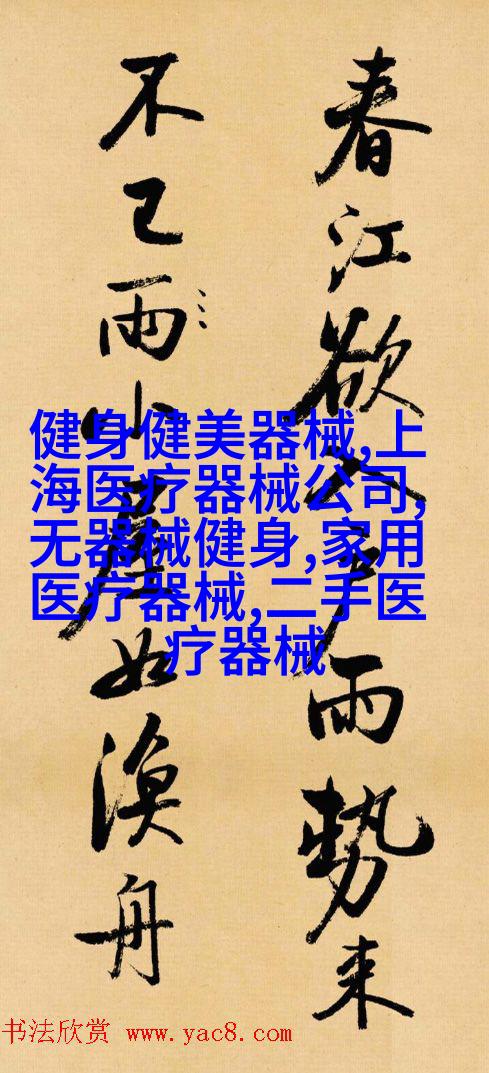 春江欲入戶雨勢来
不已雨小屋如漁舟
健身健美器械,上
海医疗器械公司,
无器械健身,家用
医疗器械,二手医
疗器械
书法欣赏 www.yac8.com